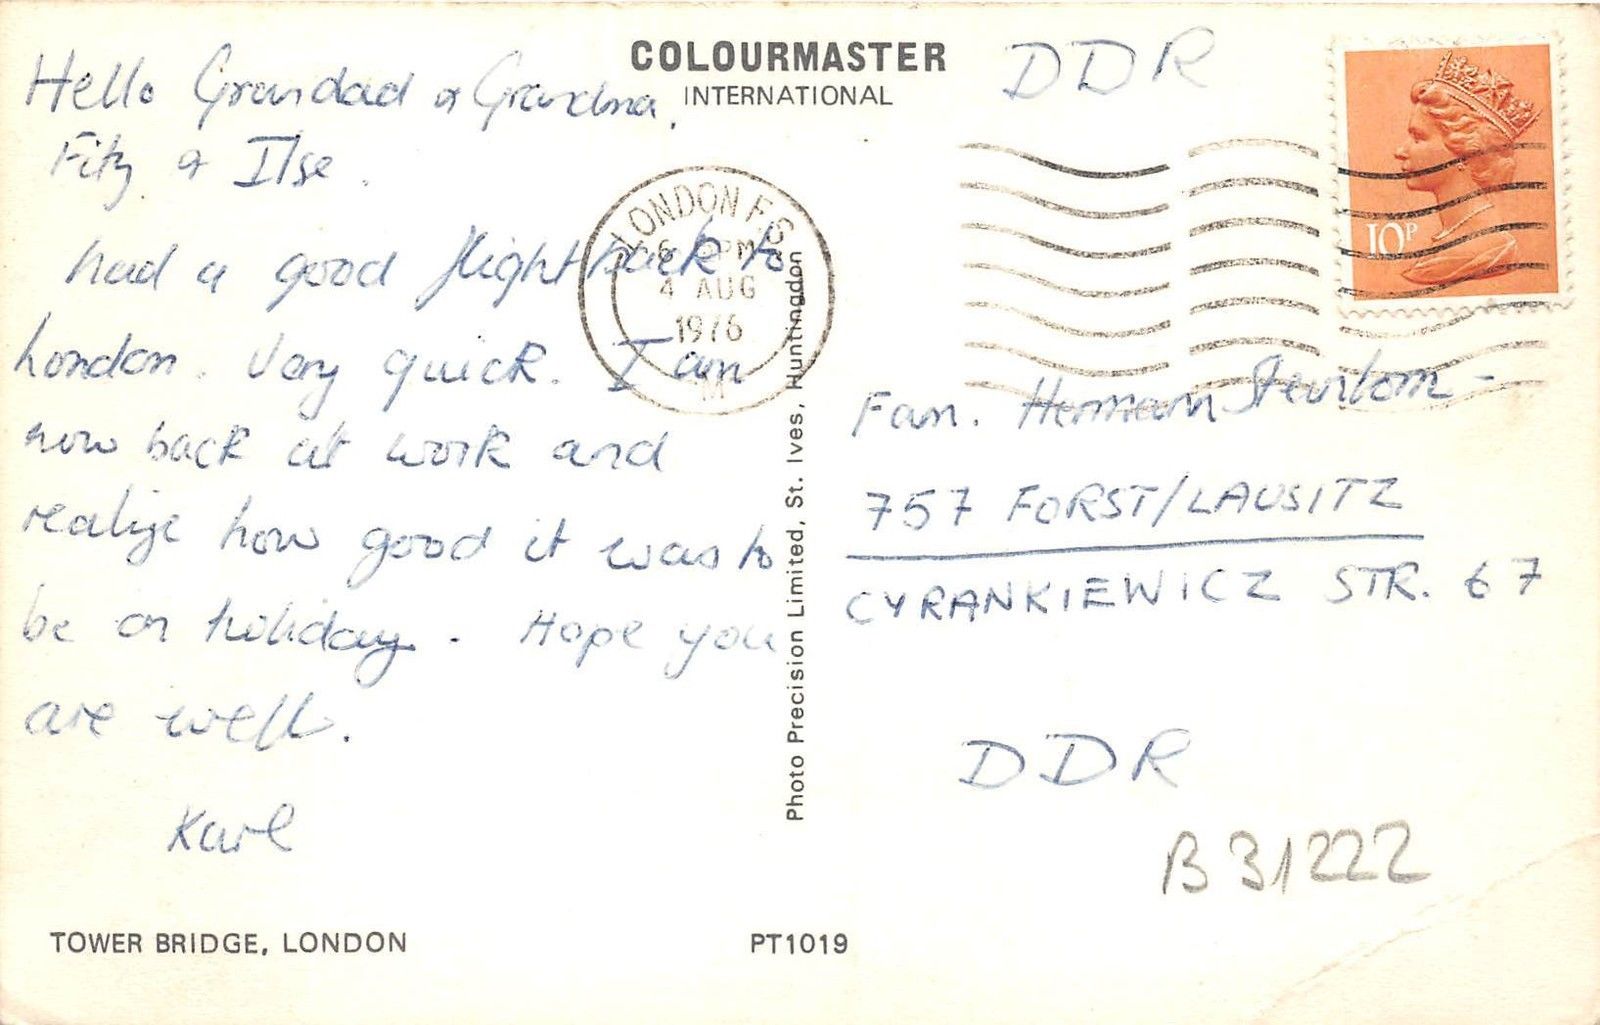 COLOURMASTER
INTERNATIONAL
Hello Grandad & Grandma,
Fitz & Ilse.
had a good flight back to
London. Very quick. I am
now back at work and
realize how good it was to
be on holiday. Hope you
are well.
Karl
TOWER BRIDGE, LONDON
PT1019
Photo Precision Limited, St. Ives, Huntingdon
LONDON F.S.
6 PM
4 AUG
1976
M
DDR
10P
Fam. Hermann
757 FORST/LAUSITZ
CYRANKIEWICZ STR. 67
DDR
B 31222